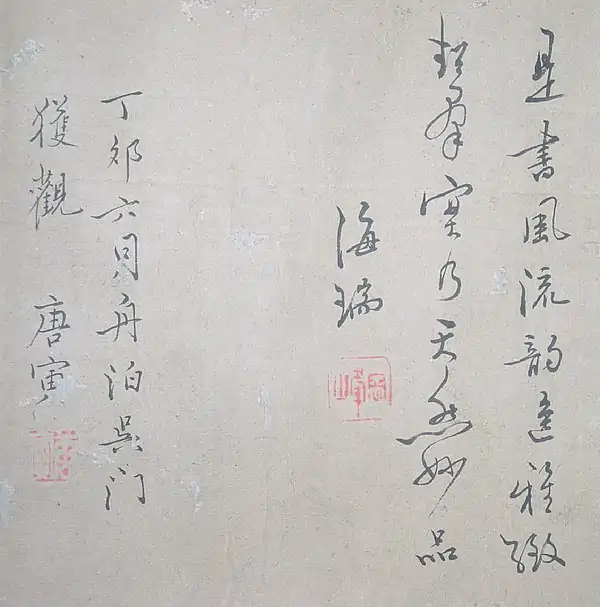 是書風流韵逸雅緻
超羣寔乃天然妙品
海瑞
丁卯六月舟泊吳门
獲觀 唐寅